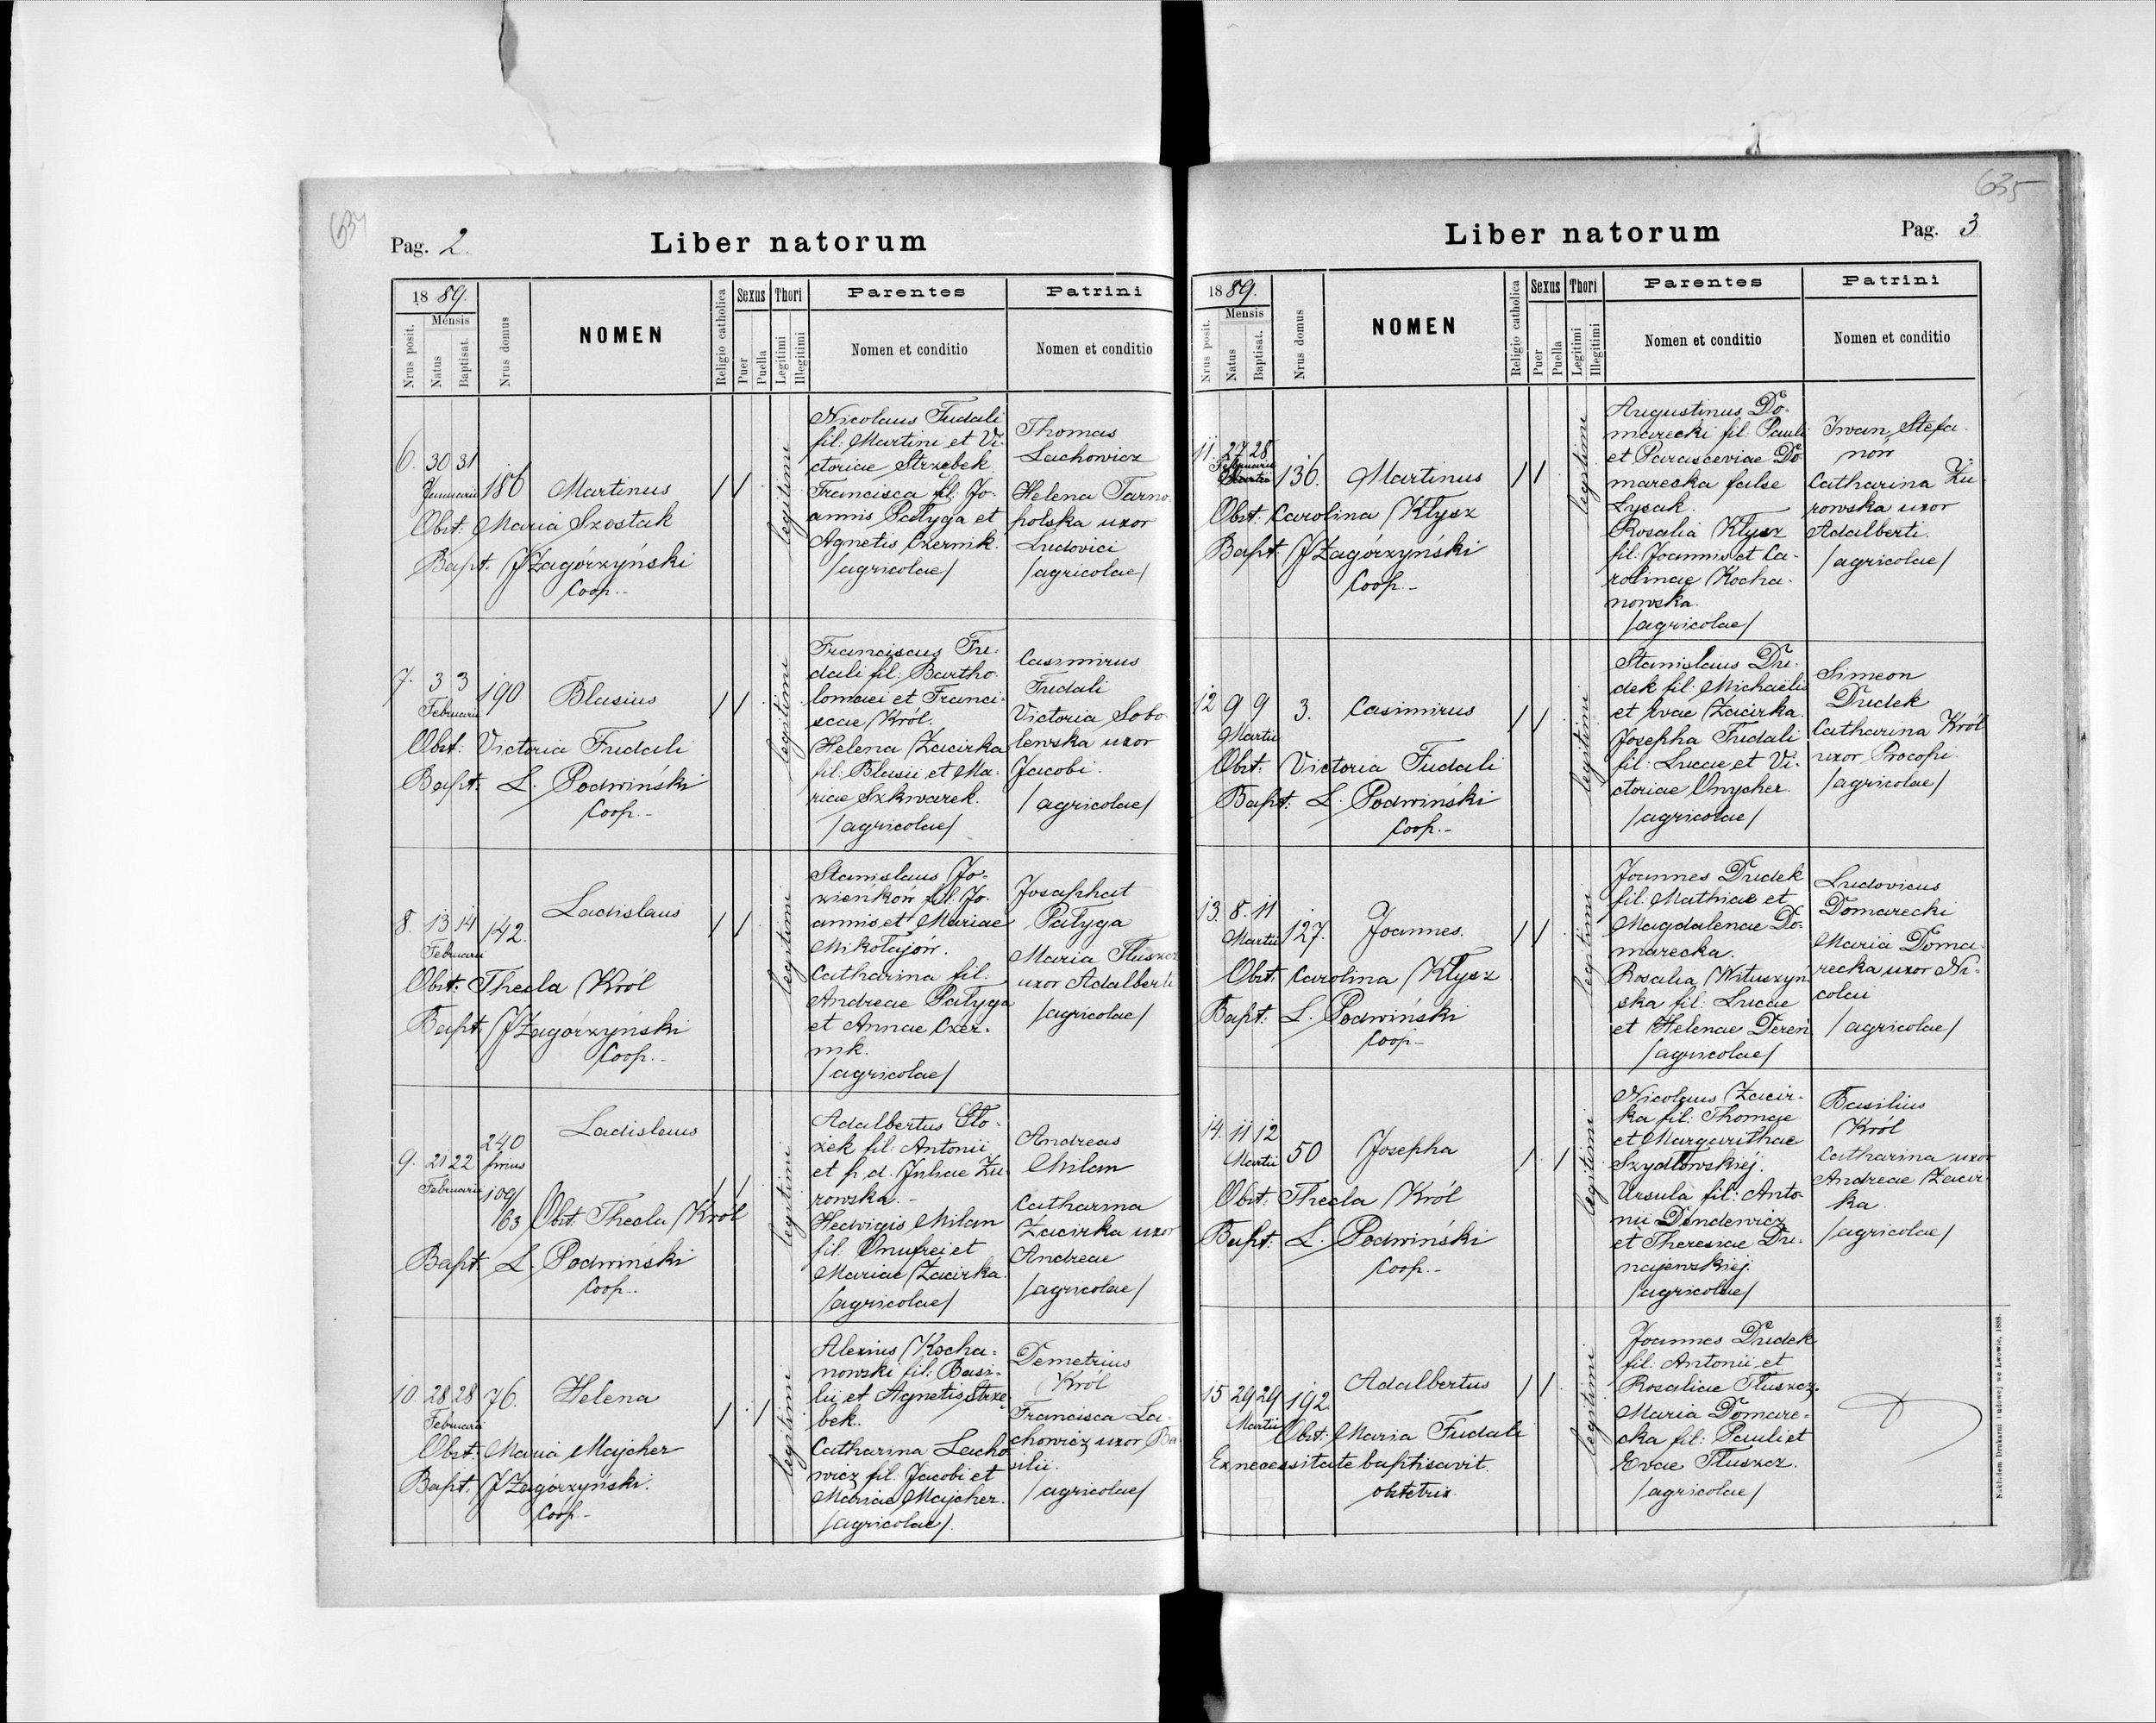 634
Pag. 2.
Liber natorum
18 89.
Mensis
Nrus posit.
Natus
Baptisat.
Nrus domus
NOMEN
Religio catholica
Sexus
Puer
Puella
Thori
Legitimi
Illegitimi
Parentes
Nomen et conditio
Patrini
Nomen et conditio
6. 30 31
Januarii 186 Martinus
Obst. Maria Szostak
Bapt. J Zagórzyński
Coop.-
legitimi
Nicolaus Fudali
fil: Martini et Vi-
ctoriae Strzębek
Francisca fil: Jo-
annis Pałyga et
Agnetis Czernik.
/agricolae/
Thomas
Lachowicz
Helena Tarno-
polska uxor
Ludovici
/agricolae/
7. 3 3
Februarii 190 Blasius
Obst: Victoria Fudali
Bapt. L. Podwiński
Coop.-
legitimi
Franciscus Fu-
dali fil: Bartho-
lomaei et Franci-
scae Król.
Helena Zacirka
fil: Blasii et Ma-
riae Szkwarek.
/agricolae/
Casimirus
Fudali
Victoria Sobo-
lewska uxor
Jacobi.
/agricolae/
8. 13 14
Februarii 142. Ladislaus
Obst: Thecla Król
Bapt. J Zagórzyński
Coop.-
legitimi
Stanislaus Jo-
zieńków fil: Jo-
annis et Mariae
Mikołajów.
Catharina fil:
Andreae Pałyga
et Annae Czer-
nik.
/agricolae/
Josaphat
Pałyga
Maria Tłuszcz
uxor Adalberti
/agricolae/
9. 21 22
Februarii
240
prius
109/
163
Ladislaus
Obst. Thecla Król
Bapt. L. Podwiński
Coop.-
legitimi
Adalbertus Gło-
zek fil: Antonii
et p. d. Juliae Żu-
rowska.-
Hedwigis Milan
fil: Onufrei et
Mariae Zacirka.
/agricolae/
Andreas
Milan
Catharina
Zacirka uxor
Andreae
/agricolae/
10. 28 28
Februarii 76. Helena
Obst: Maria Majcher
Bapt. J Zagórzyński.
Coop.-
legitimi
Alexius Kocha-
nowski fil: Basi-
lii et Agnetis Strzę-
bek.
Catharina Lacho-
wicz fil: Jacobi et
Mariae Majcher.
/agricolae/.
Demetrius
Król
Francisca La-
chowicz uxor Ba-
silii.
/agricolae/
635
Liber natorum
Pag. 3
18 89.
Mensis
Nrus posit.
Natus
Baptisat.
Nrus domus
NOMEN
Religio catholica
Sexus
Puer
Puella
Thori
Legitimi
Illegitimi
Parentes
Nomen et conditio
Patrini
Nomen et conditio
11. 27 28
Februarii
136. Martinus
Obst: Carolina Kłysz
Bapt. J Zagórzyński
Coop.-
legitimi
Augustinus Do-
marecki fil: Pauli
et Parasceviae Do-
marecka false
Łysak.
Rosalia Kłysz
fil: Joannis et Ca-
rolinae Kocha-
nowska.
/agricolae/
Iwan Stefa-
nów
Catharina Żu-
rowska uxor
Adalberti.
/agricolae/
12 9 9
Martii 3. Casimirus
Obst. Victoria Fudali
Bapt: L. Podwiński
Coop.-
legitimi
Stanislaus Du-
dek fil: Michaëlis
et Evae Zacirka.
Josepha Fudali
fil: Lucae et Vi-
ctoriae Onycher.
/agricolae/
Simeon
Dudek
Catharina Król
uxor Procopi.
/agricolae/
13. 8. 11
Martii 127. Joannes.
Obst. Carolina Kłysz
Bapt: L. Podwiński
Coop-
legitimi
Joannes Dudek
fil: Mathiae et
Magdalenae Do-
marecka.
Rosalia Wituszyń-
ska fil: Lucae
et Helenae Dereń
/agricolae/
Ludovicus
Domarecki
Maria Doma-
recka uxor Ni-
colai
/agricolae/
14. 11 12
Martii 50 Josepha
Obst: Thecla Król
Bapt: L. Podwiński
Coop.-
legitimi
Nicolaus Zacir-
ka fil: Thomae
et Margarithae
Szydłowskiéj.
Ursula fil: Anto-
nii Dendewicz
et Theresiae Du-
najewskiej.
/agricolae/
Basilius
Król
Catharina uxor
Andreae Zacir-
ka.
/agricolae/
15 29 29
Martii 192. Adalbertus
Obst: Maria Fudali
Ex necessitate baptisavit
obstetrix.
legitimi
Joannes Dudek
fil: Antonii et
Rosaliae Tłuszcz.
Maria Domare-
cka fil: Pauli et
Evae Tłuszcz.
/agricolae/
Nakładem Drukarni ludowej we Lwowie. 1888.